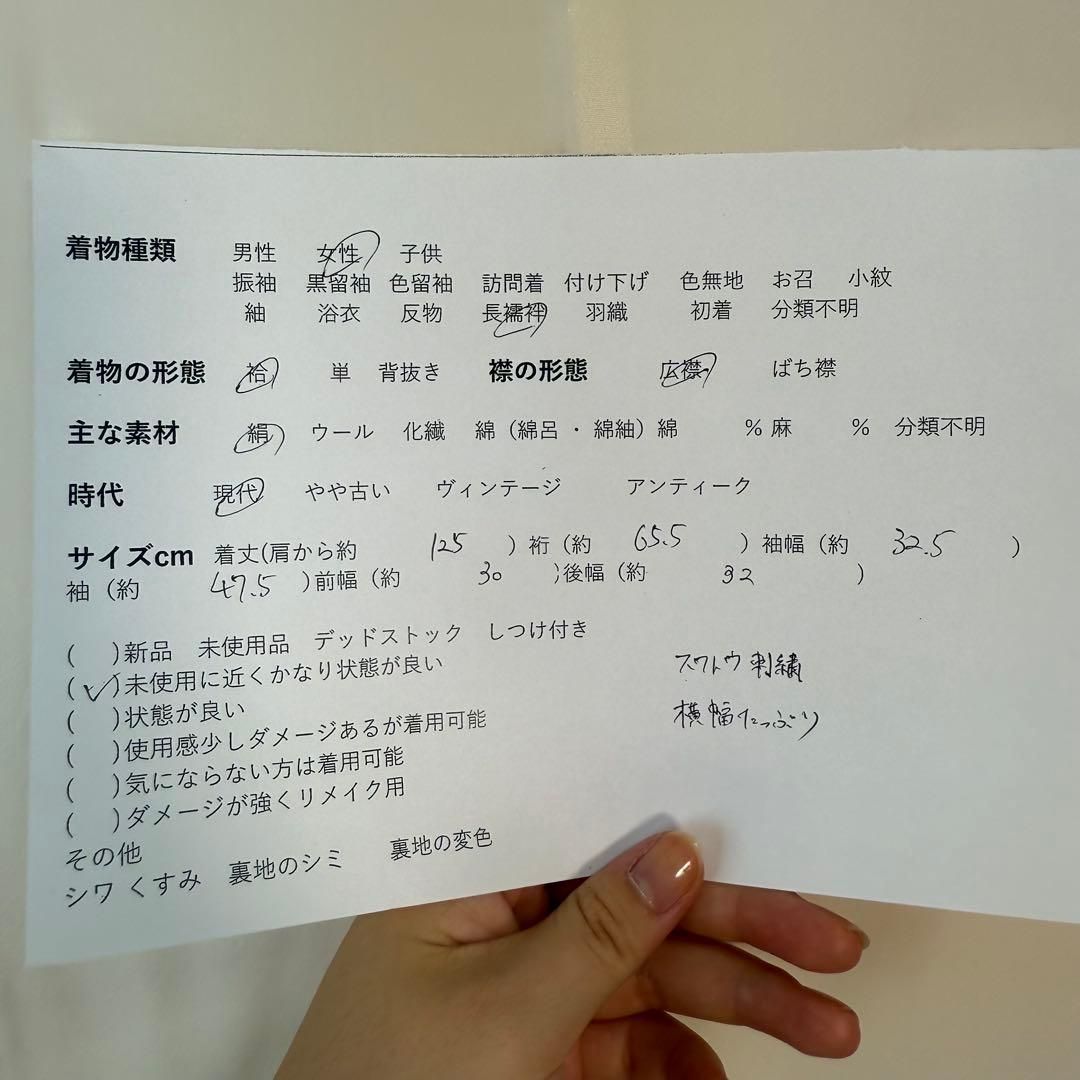 着物種類 男性 女性 子供
振袖 黒留袖 色留袖 訪問着 付け下げ 色無地 お召 小紋
紬 浴衣 反物 長襦袢 羽織 初着 分類不明
着物の形態 袷 単 背抜き 襟の形態 広襟 ばち襟
主な素材 絹 ウール 化繊 綿（綿呂・綿紬）綿 % 麻 % 分類不明
時代 現代 やや古い ヴィンテージ アンティーク
サイズcm 着丈(肩から約 125 ）裄（約 65.5 ）袖幅（約 32.5 ）
袖（約 47.5 ）前幅（約 30 ）後幅（約 32 ）
( )新品 未使用品 デッドストック しつけ付き
(✓)未使用に近くかなり状態が良い
( )状態が良い
( )使用感少しダメージあるが着用可能
( )気にならない方は着用可能
( )ダメージが強くリメイク用
スワトウ刺繍
横幅たっぷり
その他
シワ くすみ 裏地のシミ 裏地の変色